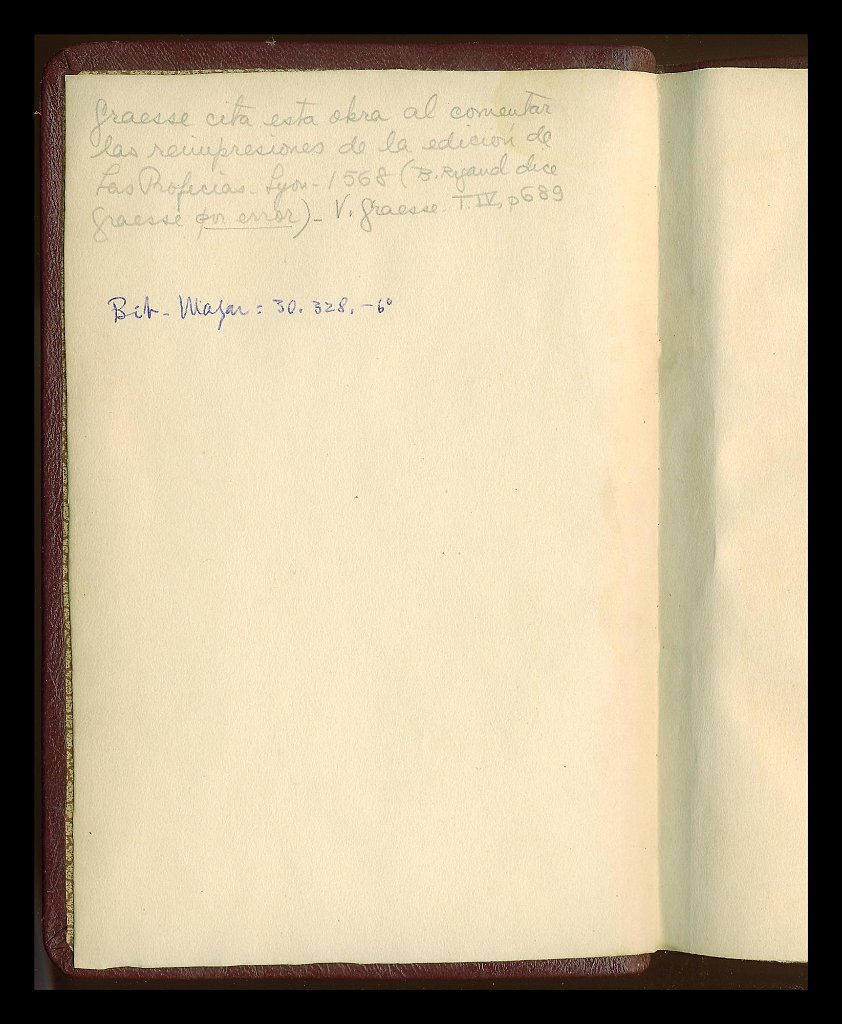 Graesse cita esta obra al comentar
las reimpresiones de la edición de
Las Profecias - Lyon - 1568 (B. Rigaud dice
Graesse por error) - V. Graesse. T. IV, p 689
Bib - Mazar = 30. 328. - 6º